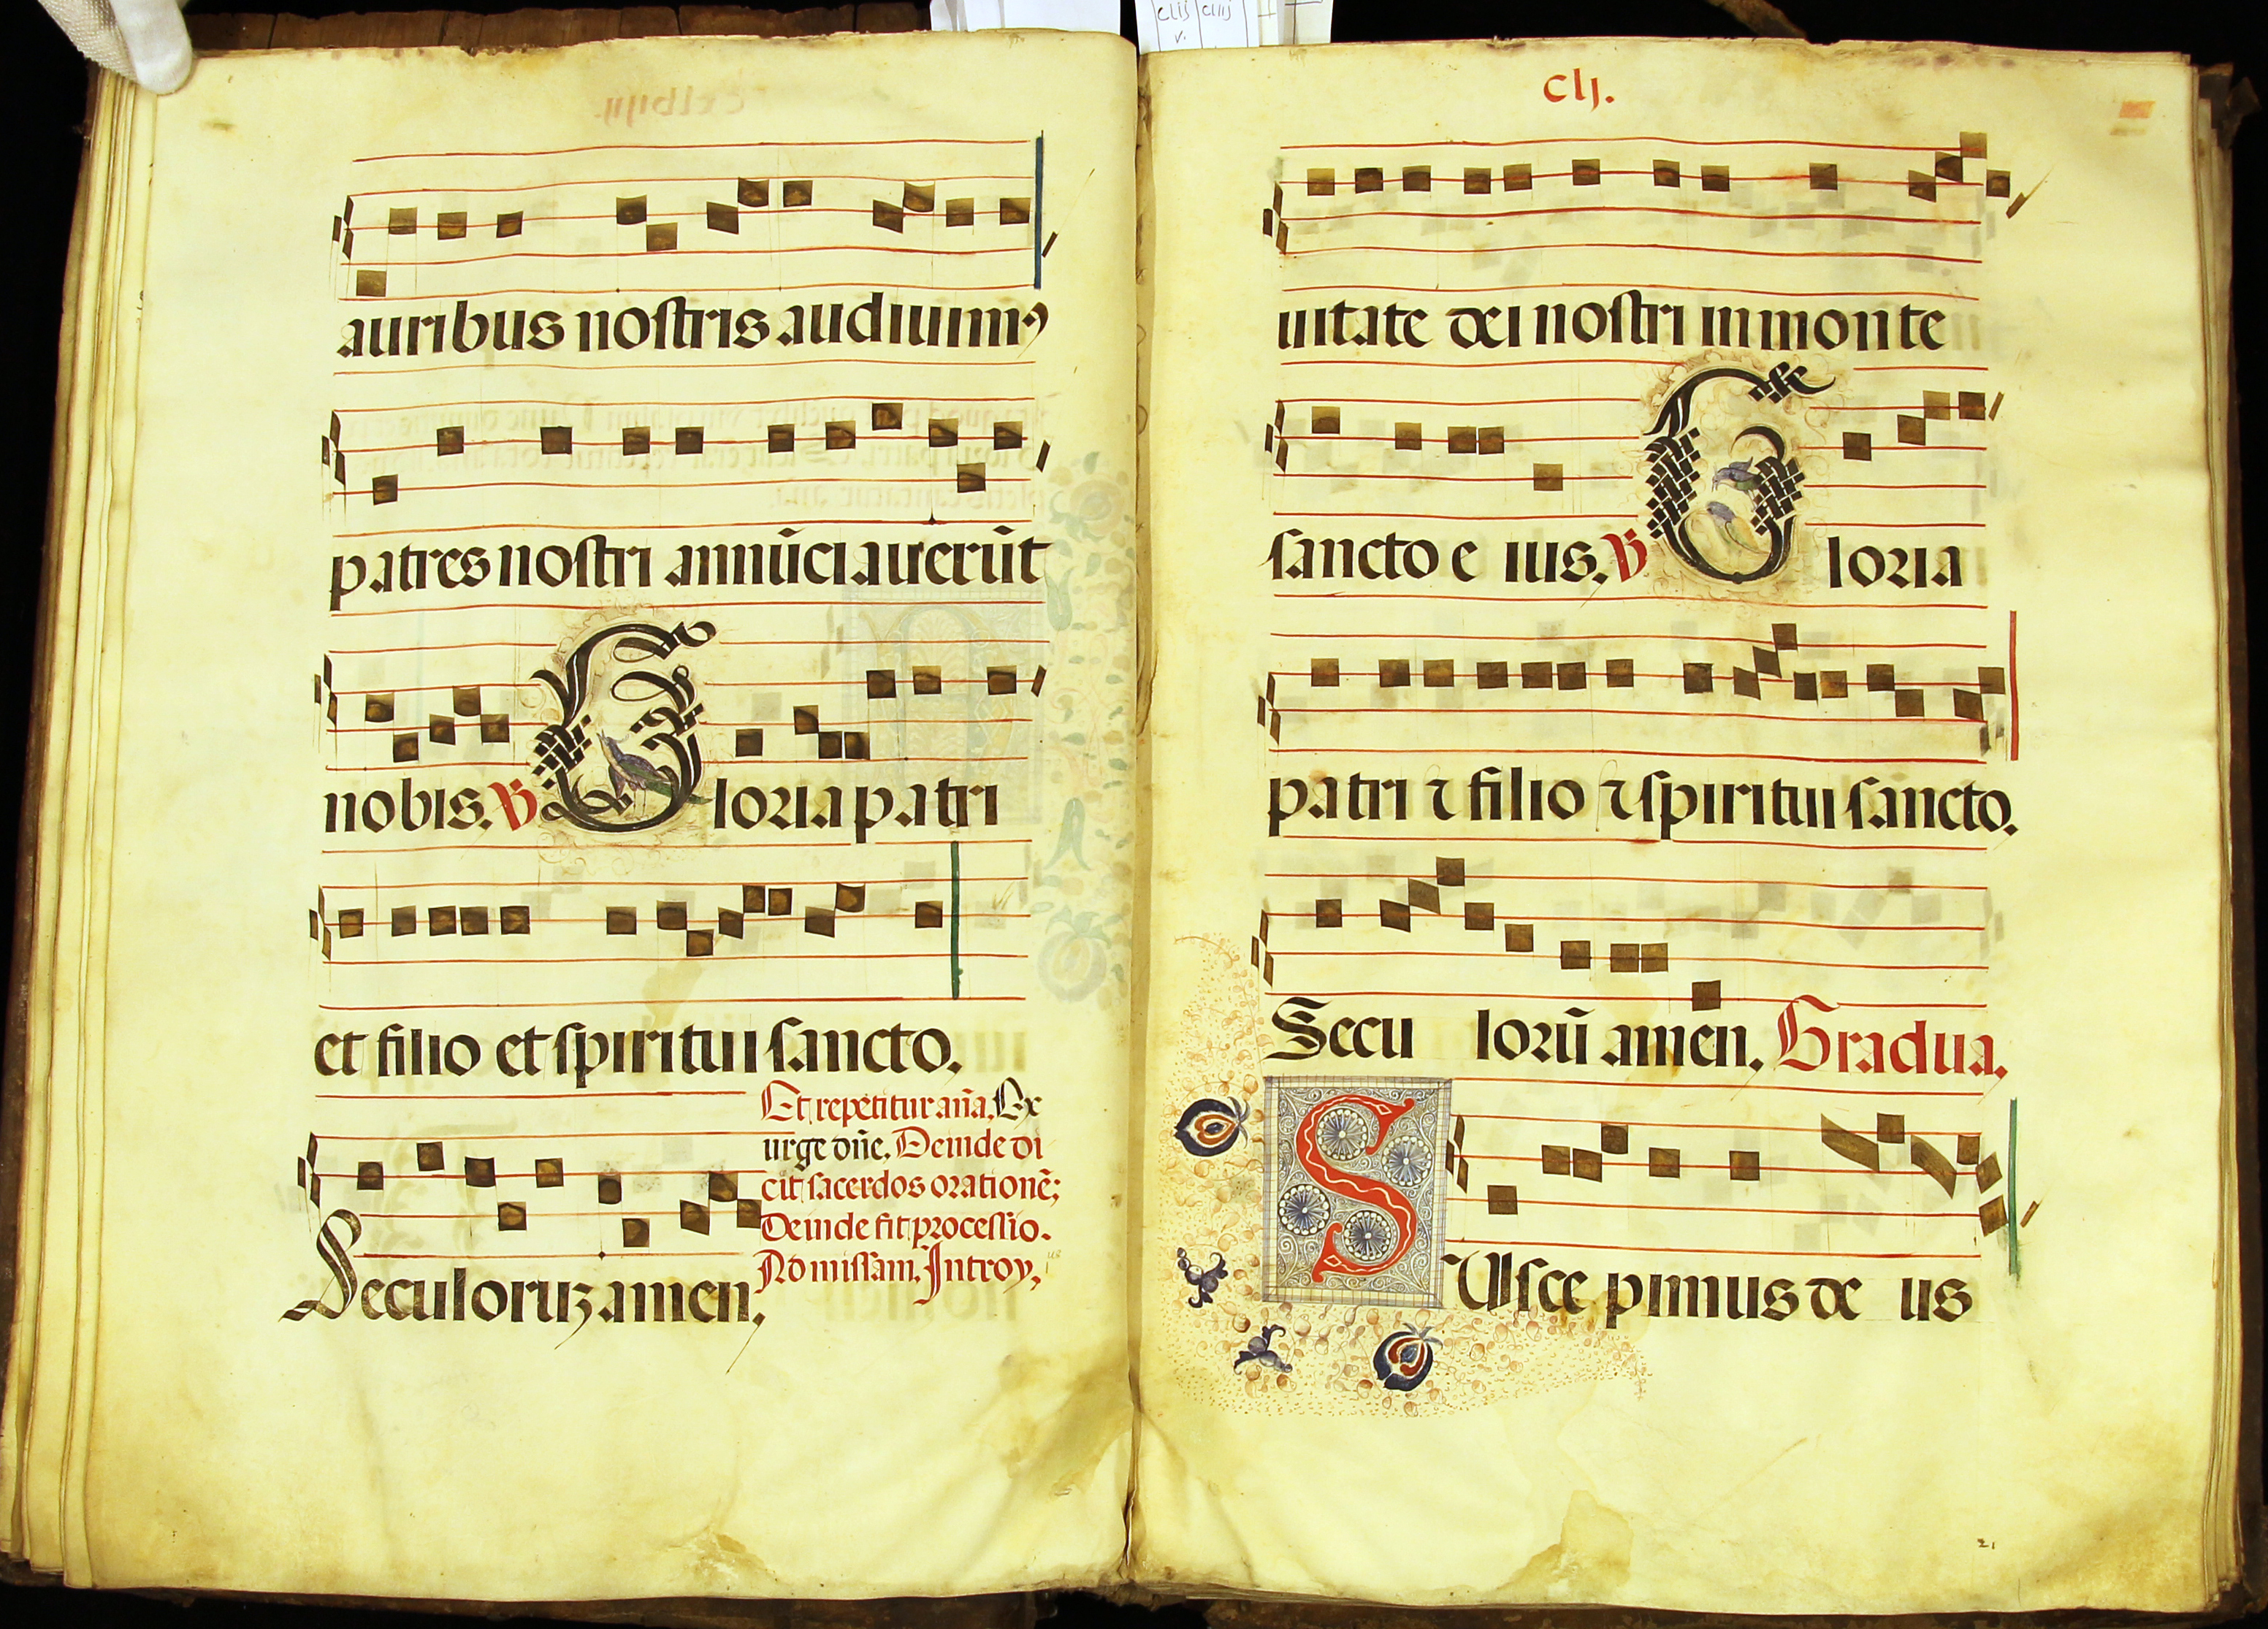 auribus nostris audiuim⁹
patres nostri annūciauerūt
nobis. V Gloria patri
et filio et spiritui sancto.
Et repetitur aña. Ex
urge dñe. Deinde di
cit sacerdos orationē;
Deinde fit processio.
Ad missam. Introy.
Seculoruꝫ amen.
clij clııj
v.
Clj.
uitate dei nostri in monte
sancto eius. V Gloria
patri ⁊ filio ⁊ spiritui sancto.
Seculorū amen. Gradua.
SUscepimus deus
21